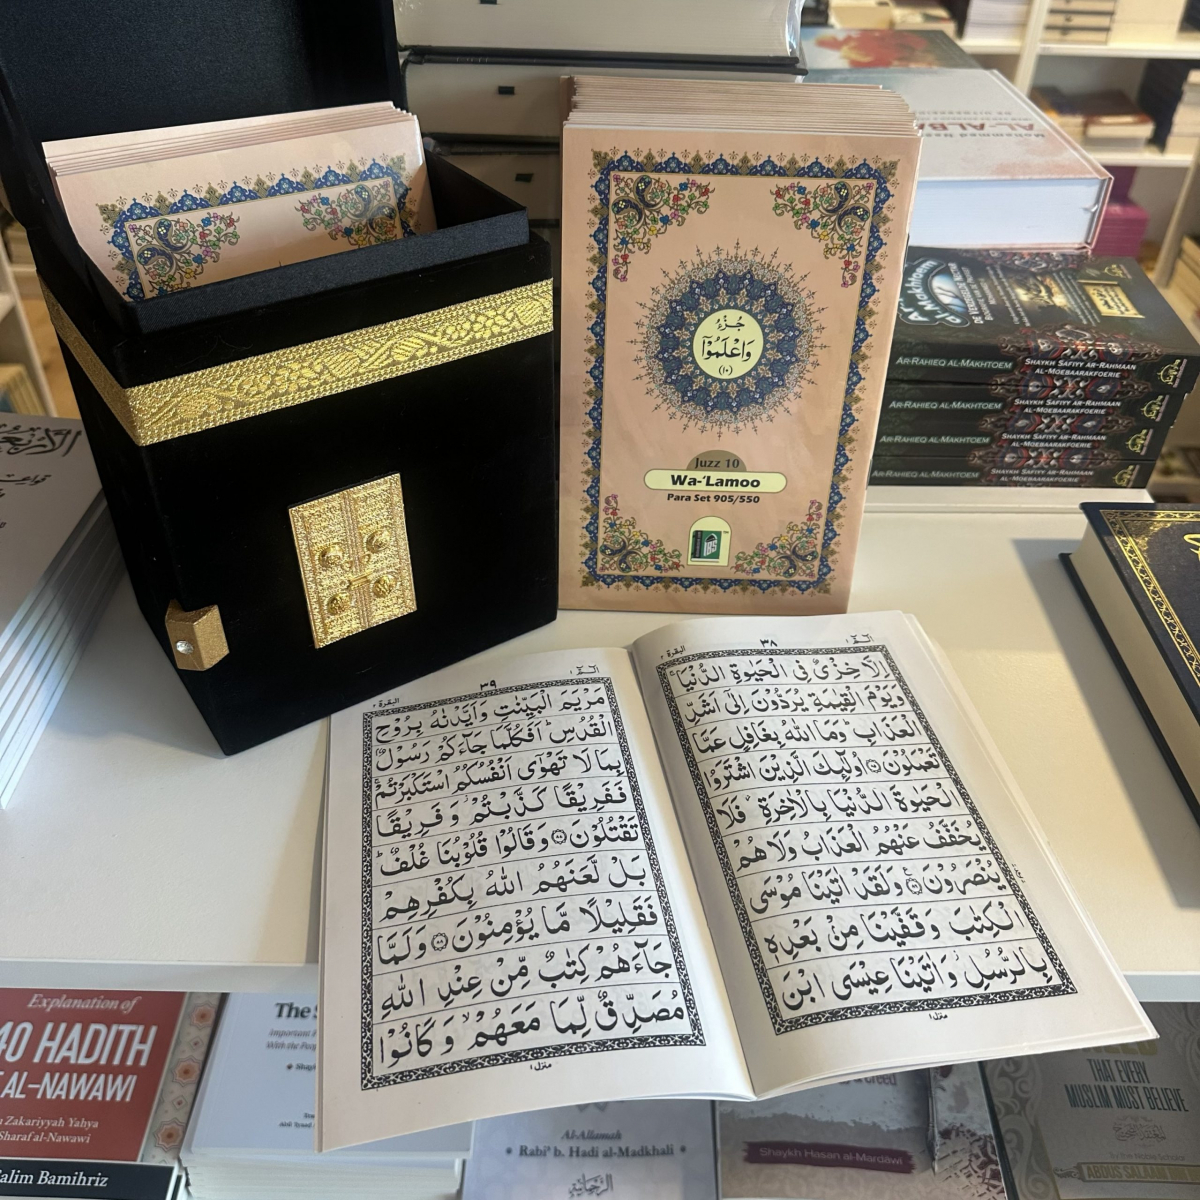 جُزْءُ
وَاعْلَمُوْٓا
(١٠)
Juzz 10
Wa-'Lamoo
Para Set 905/550
IBS
البقرة ٢
٣٨
الٓمّٓ ١
اِلَّا خِزْیٌ فِی الْحَیٰوةِ الدُّنْیَا ۚ
وَیَوْمَ الْقِیٰمَةِ یُرَدُّوْنَ اِلٰۤی اَشَدِّ
الْعَذَابِ ؕ وَمَا اللّٰهُ بِغَافِلٍ عَمَّا
تَعْمَلُوْنَ ﴿٨٥﴾ اُولٰٓئِكَ الَّذِیْنَ اشْتَرَوُا
الْحَیٰوةَ الدُّنْیَا بِالْاٰخِرَةِ ؗ فَلَا
یُخَفَّفُ عَنْهُمُ الْعَذَابُ وَلَا هُمْ
یُنْصَرُوْنَ ﴿٨٦﴾ وَلَقَدْ اٰتَیْنَا مُوْسَی
الْكِتٰبَ وَقَفَّیْنَا مِنْۢ بَعْدِهٖ
بِالرُّسُلِ ؗ وَاٰتَیْنَا عِیْسَی ابْنَ
منزل ١
البقرة ٢
٣٩
الٓمّٓ ١
مَرْیَمَ الْبَیِّنٰتِ وَاَیَّدْنٰهُ بِرُوْحِ
الْقُدُسِ ؕ اَفَكُلَّمَا جَآءَكُمْ رَسُوْلٌۢ
بِمَا لَا تَهْوٰۤی اَنْفُسُكُمُ اسْتَكْبَرْتُمْ ۚ
فَفَرِیْقًا كَذَّبْتُمْ ؗ وَفَرِیْقًا
تَقْتُلُوْنَ ﴿٨٧﴾ وَقَالُوْا قُلُوْبُنَا غُلْفٌ ؕ
بَلْ لَّعَنَهُمُ اللّٰهُ بِكُفْرِهِمْ
فَقَلِیْلًا مَّا یُؤْمِنُوْنَ ﴿٨٨﴾ وَلَمَّا
جَآءَهُمْ كِتٰبٌ مِّنْ عِنْدِ اللّٰهِ
مُصَدِّقٌ لِّمَا مَعَهُمْ ۙ وَكَانُوْا
منزل ١
AL-ALBA
Ar-Rahieq
al-Makhtoem
AR-RAHIEQ AL-MAKHTOEM
SHAYKH SAFIYY AR-RAHMAAN
AL-MOEBAARAKFOERIE
AR-RAHIEQ AL-MAKHTOEM
SHAYKH SAFIYY AR-RAHMAAN
AL-MOEBAARAKFOERIE
AR-RAHIEQ AL-MAKHTOEM
SHAYKH SAFIYY AR-RAHMAAN
AL-MOEBAARAKFOERIE
AR-RAHIEQ AL-MAKHTOEM
SHAYKH SAFIYY AR-RAHMAAN
AL-MOEBAARAKFOERIE
Explanation of
40 HADITH
AL-NAWAWI
Zakariyyah Yahya
Sharaf al-Nawawi
alim Bamihriz
The
Important
Al-Allamah
• Rabi' b. Hadi al-Madkhali •
Creed
Shaykh Hasan al-Mardāwi
THAT EVERY
MUSLIM MUST BELIEVE
By the Noble Scholar
ABDUS SALAAM